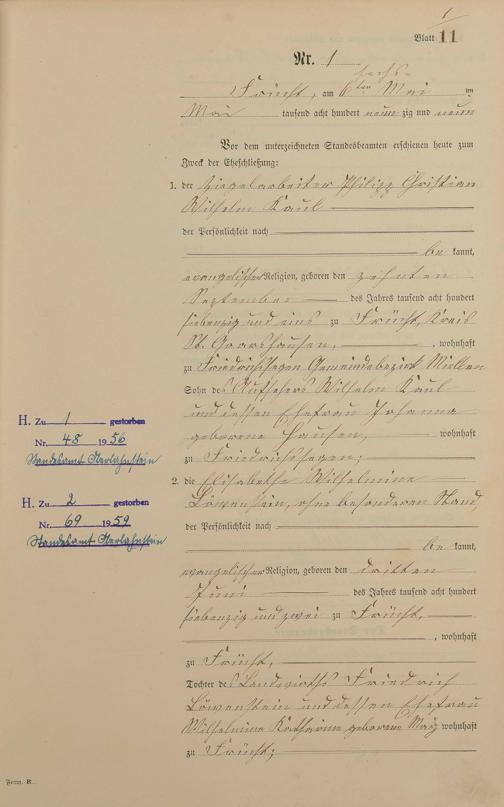 1
Blatt 11
Nr. 1
sechs
Frücht, am 6ten Mai
Mai tausend acht hundert neunzig und neun
Vor dem unterzeichneten Standesbeamten erschienen heute zum
Zweck der Eheschließung:
1. der Ziegelarbeiter Philipp Christian
Wilhelm Kaul
der Persönlichkeit nach
be kannt,
evangelischer Religion, geboren den zehnten
September des Jahres tausend acht hundert
siebenzig und eins zu Frücht, Kreis
St. Goarshausen, wohnhaft
zu Friedrichssegen Gemeindebezirk Miellen
Sohn des Aufsehers Wilhelm Kaul
und dessen Ehefrau Johanna
geborene Hausen, wohnhaft
zu Friedrichssegen;
2. die Elisabetha Wilhelmine
Löwenstein, ohne besonderen Stand
der Persönlichkeit nach
be kannt,
evangelischer Religion, geboren den dritten
Juni des Jahres tausend acht hundert
siebenzig und zwei zu Frücht,
, wohnhaft
zu Frücht,
Tochter des Landwirths Friedrich
Löwenstein und dessen Ehefrau
Wilhelmine Katharine geborene May wohnhaft
zu Frücht;
H. Zu 1 gestorben
Nr. 48 1956
Standesamt Oberlahnstein
H. Zu 2 gestorben
Nr. 69 1959
Standesamt Oberlahnstein
Form. B.